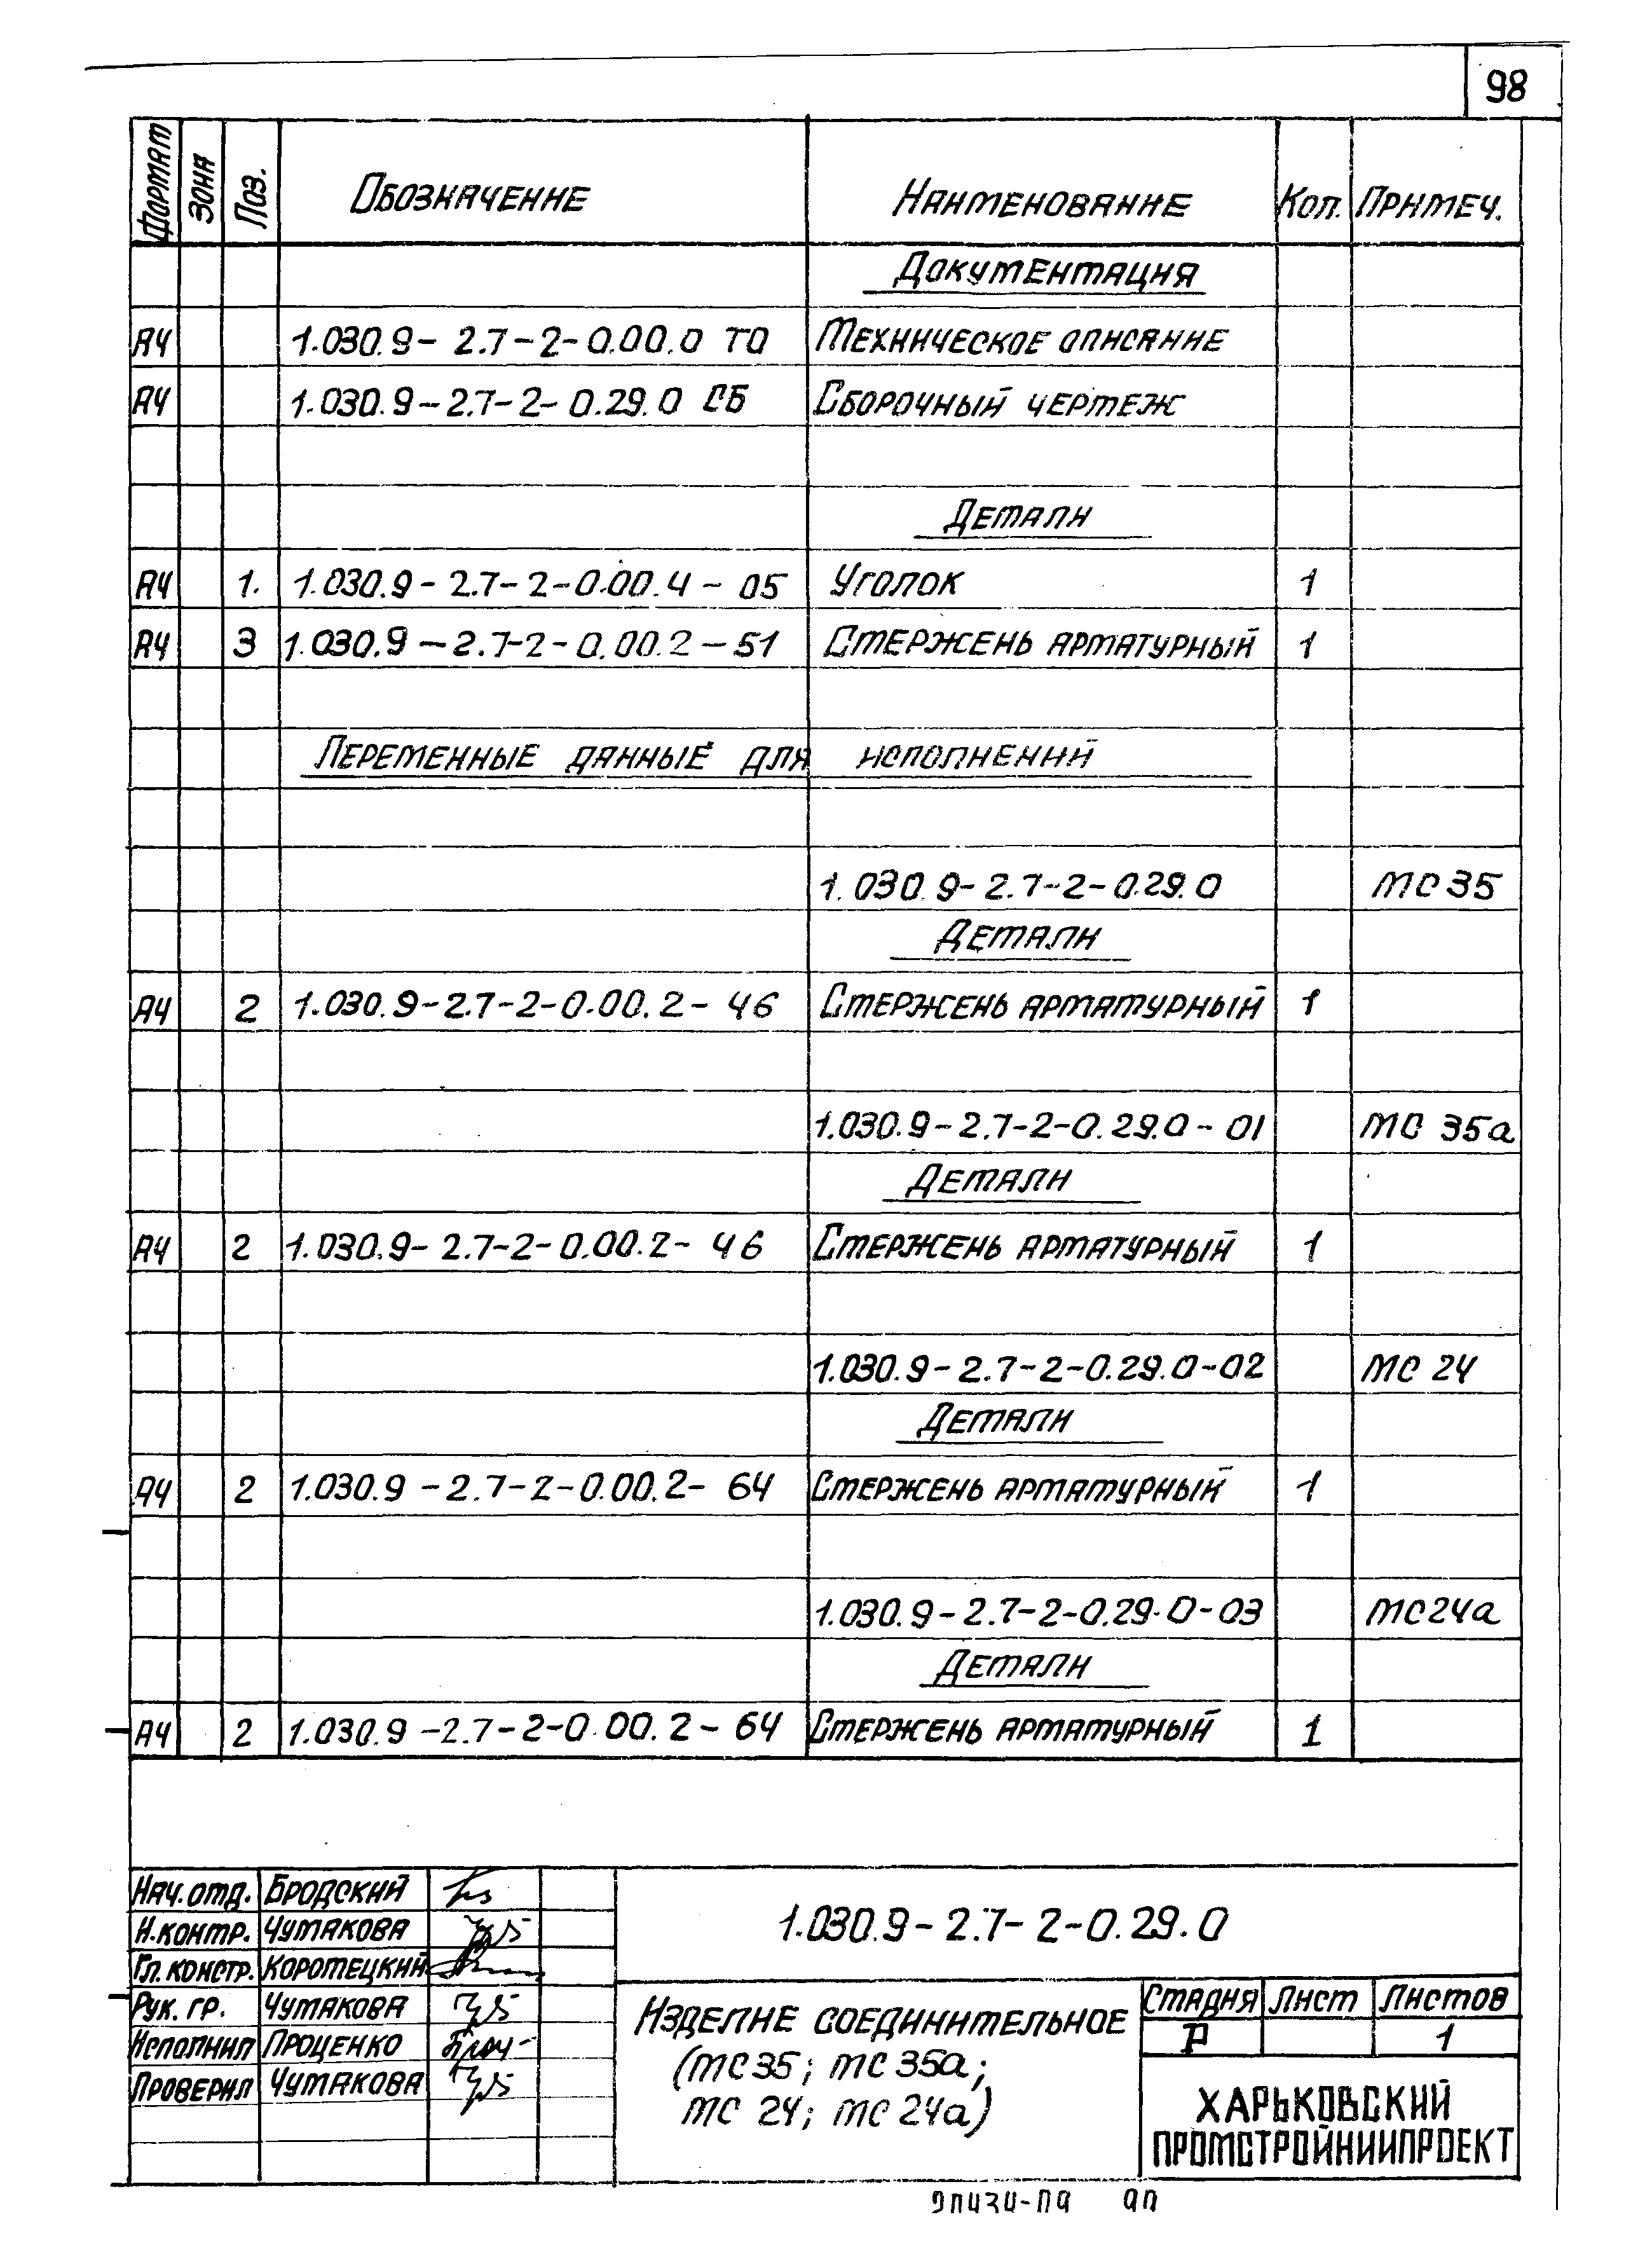 98
Формат Зона Поз. Обозначение Наименование Кол. Примеч.
Документация
А4 1.030.9-2.7-2-0.00.0 ТО Техническое описание
А4 1.030.9-2.7-2-0.29.0 СБ Сборочный чертеж
Детали
А4 1. 1.030.9-2.7-2-0.00.4-05 Уголок 1
А4 3 1.030.9-2.7-2-0.00.2-51 Стержень арматурный 1
Переменные данные для исполнений
1.030.9-2.7-2-0.29.0 МС 35
Детали
А4 2 1.030.9-2.7-2-0.00.2-46 Стержень арматурный 1
1.030.9-2.7-2-0.29.0-01 МС 35а
Детали
А4 2 1.030.9-2.7-2-0.00.2-46 Стержень арматурный 1
1.030.9-2.7-2-0.29.0-02 МС 24
Детали
А4 2 1.030.9-2.7-2-0.00.2-64 Стержень арматурный 1
1.030.9-2.7-2-0.29.0-03 МС 24а
Детали
А4 2 1.030.9-2.7-2-0.00.2-64 Стержень арматурный 1
Нач. отд. Бродский
Н. контр. Чумакова
Гл. констр. Коротецкий
Рук. гр. Чумакова
Исполнил Проценко
Проверил Чумакова
1.030.9-2.7-2-0.29.0
Изделие соединительное
(МС 35; МС 35а;
МС 24; МС 24а)
Стадия Лист Листов
Р 1
ХАРЬКОВСКИЙ
ПРОМСТРОЙНИИПРОЕКТ